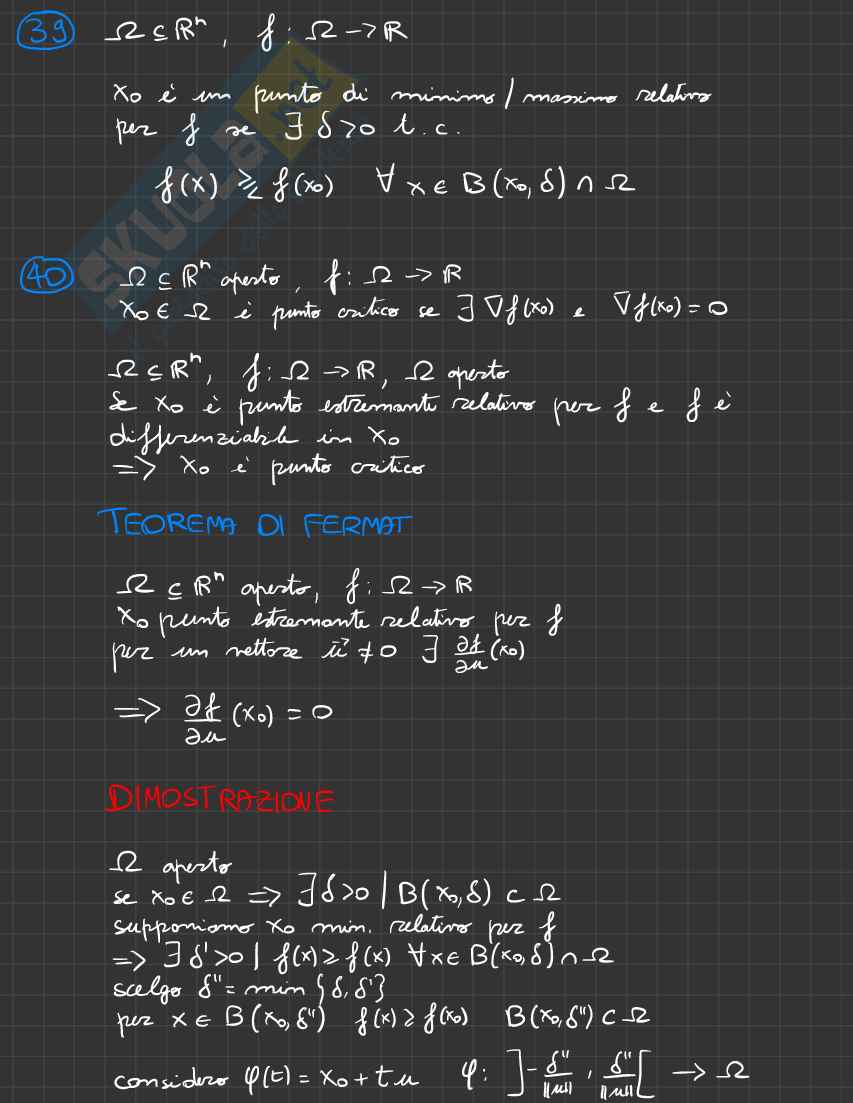 39 Ω ⊆ ℝⁿ, f: Ω → ℝ
x₀ è un punto di minimo/massimo relativo
per f se ∃ δ>0 t.c.
f(x) ⋛ f(x₀) ∀ x ∈ B(x₀, δ) ∩ Ω
40 Ω ⊆ ℝⁿ aperto, f: Ω → ℝ
x₀ ∈ Ω è punto critico se ∃ ∇f(x₀) e ∇f(x₀) = 0
Ω ⊆ ℝⁿ, f: Ω → ℝ, Ω aperto
Se x₀ è punto estremante relativo per f e f è
differenziabile in x₀
=> x₀ è punto critico
TEOREMA DI FERMAT
Ω ⊆ ℝⁿ aperto, f: Ω → ℝ
x₀ punto estremante relativo per f
per un vettore u⃗ ≠ 0 ∃ ∂f/∂u (x₀)
=> ∂f/∂u (x₀) = 0
DIMOSTRAZIONE
Ω aperto
se x₀ ∈ Ω => ∃ δ>0 | B(x₀, δ) ⊂ Ω
supponiamo x₀ min. relativo per f
=> ∃ δ'>0 | f(x) ≥ f(x) ∀ x ∈ B(x₀, δ) ∩ Ω
scelgo δ'' = min {δ, δ'}
per x ∈ B(x₀, δ'') f(x) ≥ f(x₀) B(x₀, δ'') ⊂ Ω
considero φ(t) = x₀ + tu φ: ]-δ''/||u||, δ''/||u||[ → Ω
SKUOLA.net